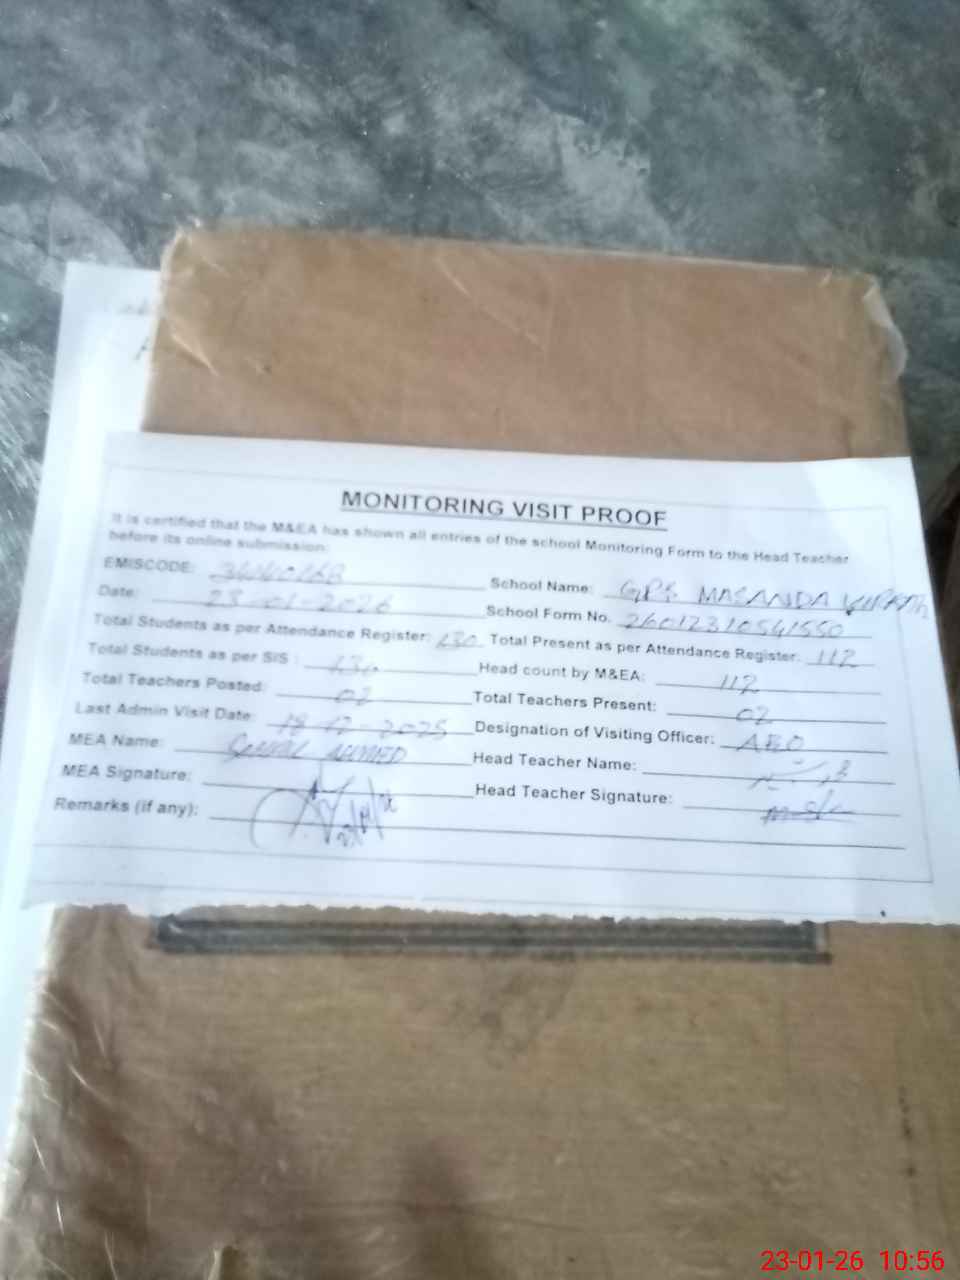 MONITORING VISIT PROOF
It is certified that the M&EA has shown all entries of the school Monitoring Form to the Head Teacher
before its online submission:
EMISCODE: School Name: GPS MASANDA
Date: 23-01-2026 School Form No. 26012310541550
Total Students as per Attendance Register: 130 Total Present as per Attendance Register: 112
Total Students as per SIS : 130 Head count by M&EA: 112
Total Teachers Posted: 02 Total Teachers Present: 02
Last Admin Visit Date: 18-12-2025 Designation of Visiting Officer: AEO
MEA Name: AHMED Head Teacher Name:
MEA Signature: Head Teacher Signature:
Remarks (if any):
23-01-26 10:56